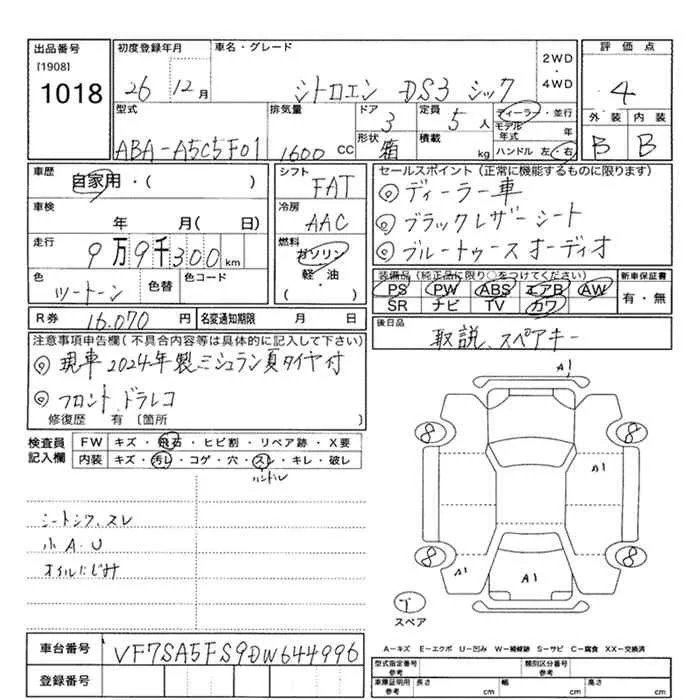 出品番号
[1908]
1018
初度登録年月
26 12月
車名・グレード
シトロエン DS3 シック
2WD
・
4WD
評価点
4
外装 内装
B B
型式
ABA-A5C5F01
排気量
1600 CC
ドア
3
形状
箱
定員
5 人
積載
kg
ディーラー・並行
モデル年式 年
ハンドル 左・右
車歴
自家用・( )
シフト
FAT
車検
年 月( 日)
冷房
AAC
走行
9万9千300km
燃料
ガソリン
・
軽・油
・
( )
色
ツートーン
色替
色コード
セールスポイント(正常に機能するものに限ります)
◎ディーラー車
◎ブラックレザーシート
◎ブルートゥースオーディオ
装備品(純正品に限り○をつけてください)
PS PW ABS エアB AW
SR ナビ TV カワ
新車保証書
有・無
R券 16.070円
名変通知期限 月 日
後日品
取説、スペアキー
注意事項申告欄(不具合内容等は具体的に記入して下さい)
◎現車2024年製ミシュラン夏タイヤ付
◎フロントドラレコ
修復歴 有〔箇所 〕
検査員
記入欄
FW キズ・飛石・ヒビ割・リペア跡・X要
内装 キズ・汚レ・コゲ・穴・スレ・キレ・破レ
ハンドル
シートシワ、スレ
小A.U
オイルにじみ
A1
8 8
A1
8 8
A1
A1
T
スペア
A-キズ E-エクボ U-凹み W-補修跡 S-サビ C-腐食 XX-交換済
車台番号
VF7SA5FS9DW644996
登録番号
型式指定番号
参考
類別区分番号
参考
車庫証明用
参考
長さ cm
幅 cm
高さ cm